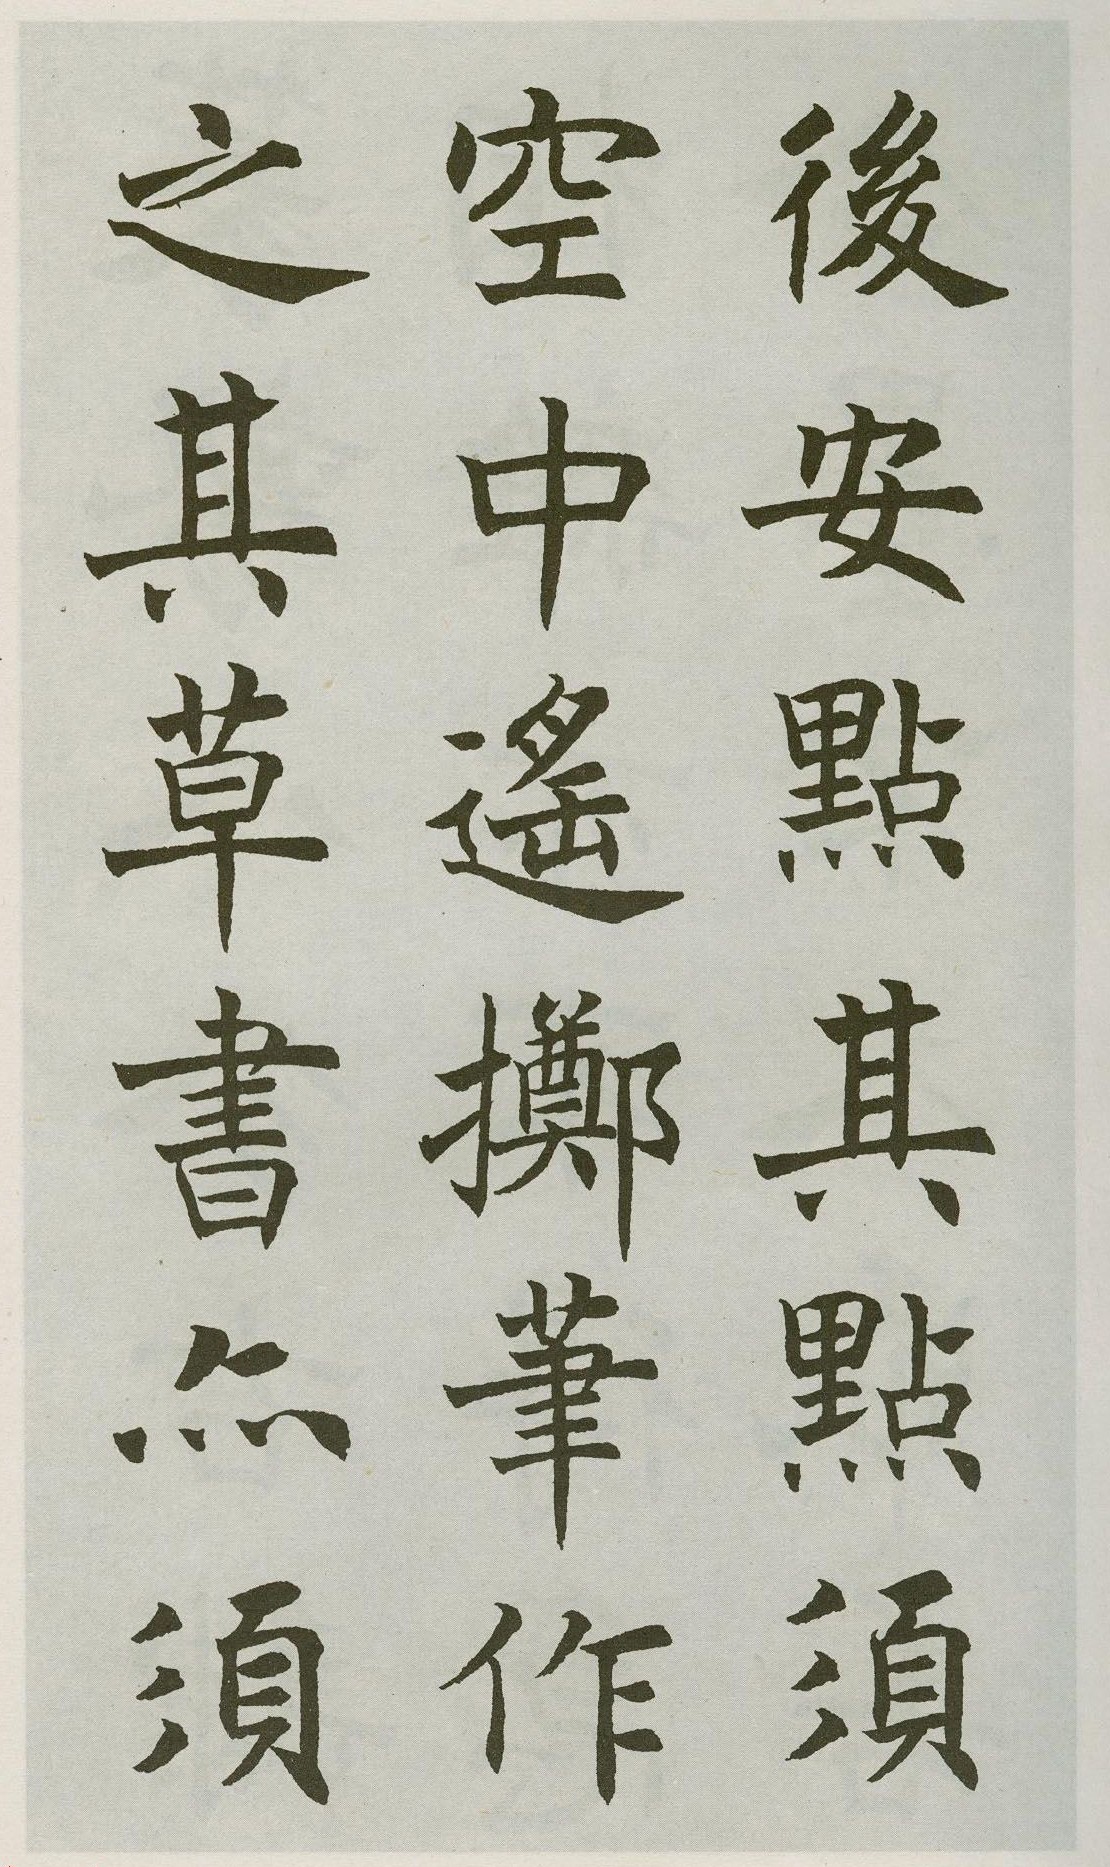 後安點其點須
空中遙擲筆作
之其草書亦須